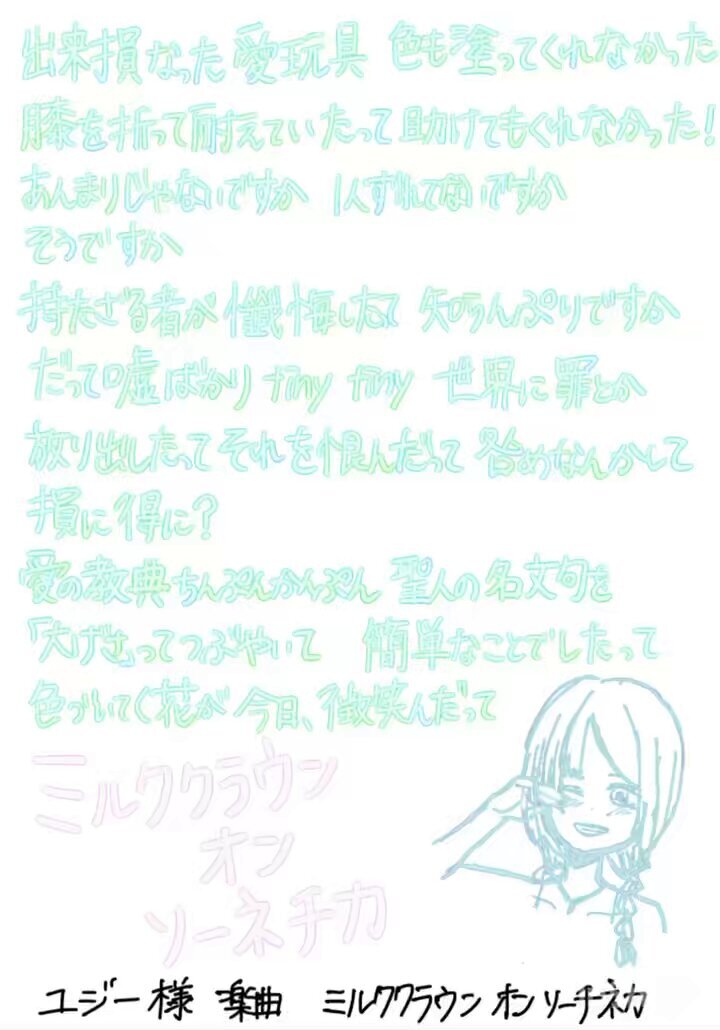 出来損なった愛玩具 色も塗ってくれなかった
膝を折って耐えていたって助けてもくれなかった!
あんまりじゃないですか 1人ずれてないですか
そうですか
持たざる者が懺悔したって 知らんぷりですか
だって嘘ばかり tiny tiny 世界に罪とか
放り出したってそれを恨んだって 咎めなんかして
損に得に?
愛の教典ちんぷんかんぷん 聖人の名文句を
「大げさ」ってつぶやいて 簡単なことでしたって
色づいてく花が今日、微笑んだって
ミルククラウン
オン
ソーネチカ
ユジー様 楽曲 ミルククラウン オン ソーチネカ